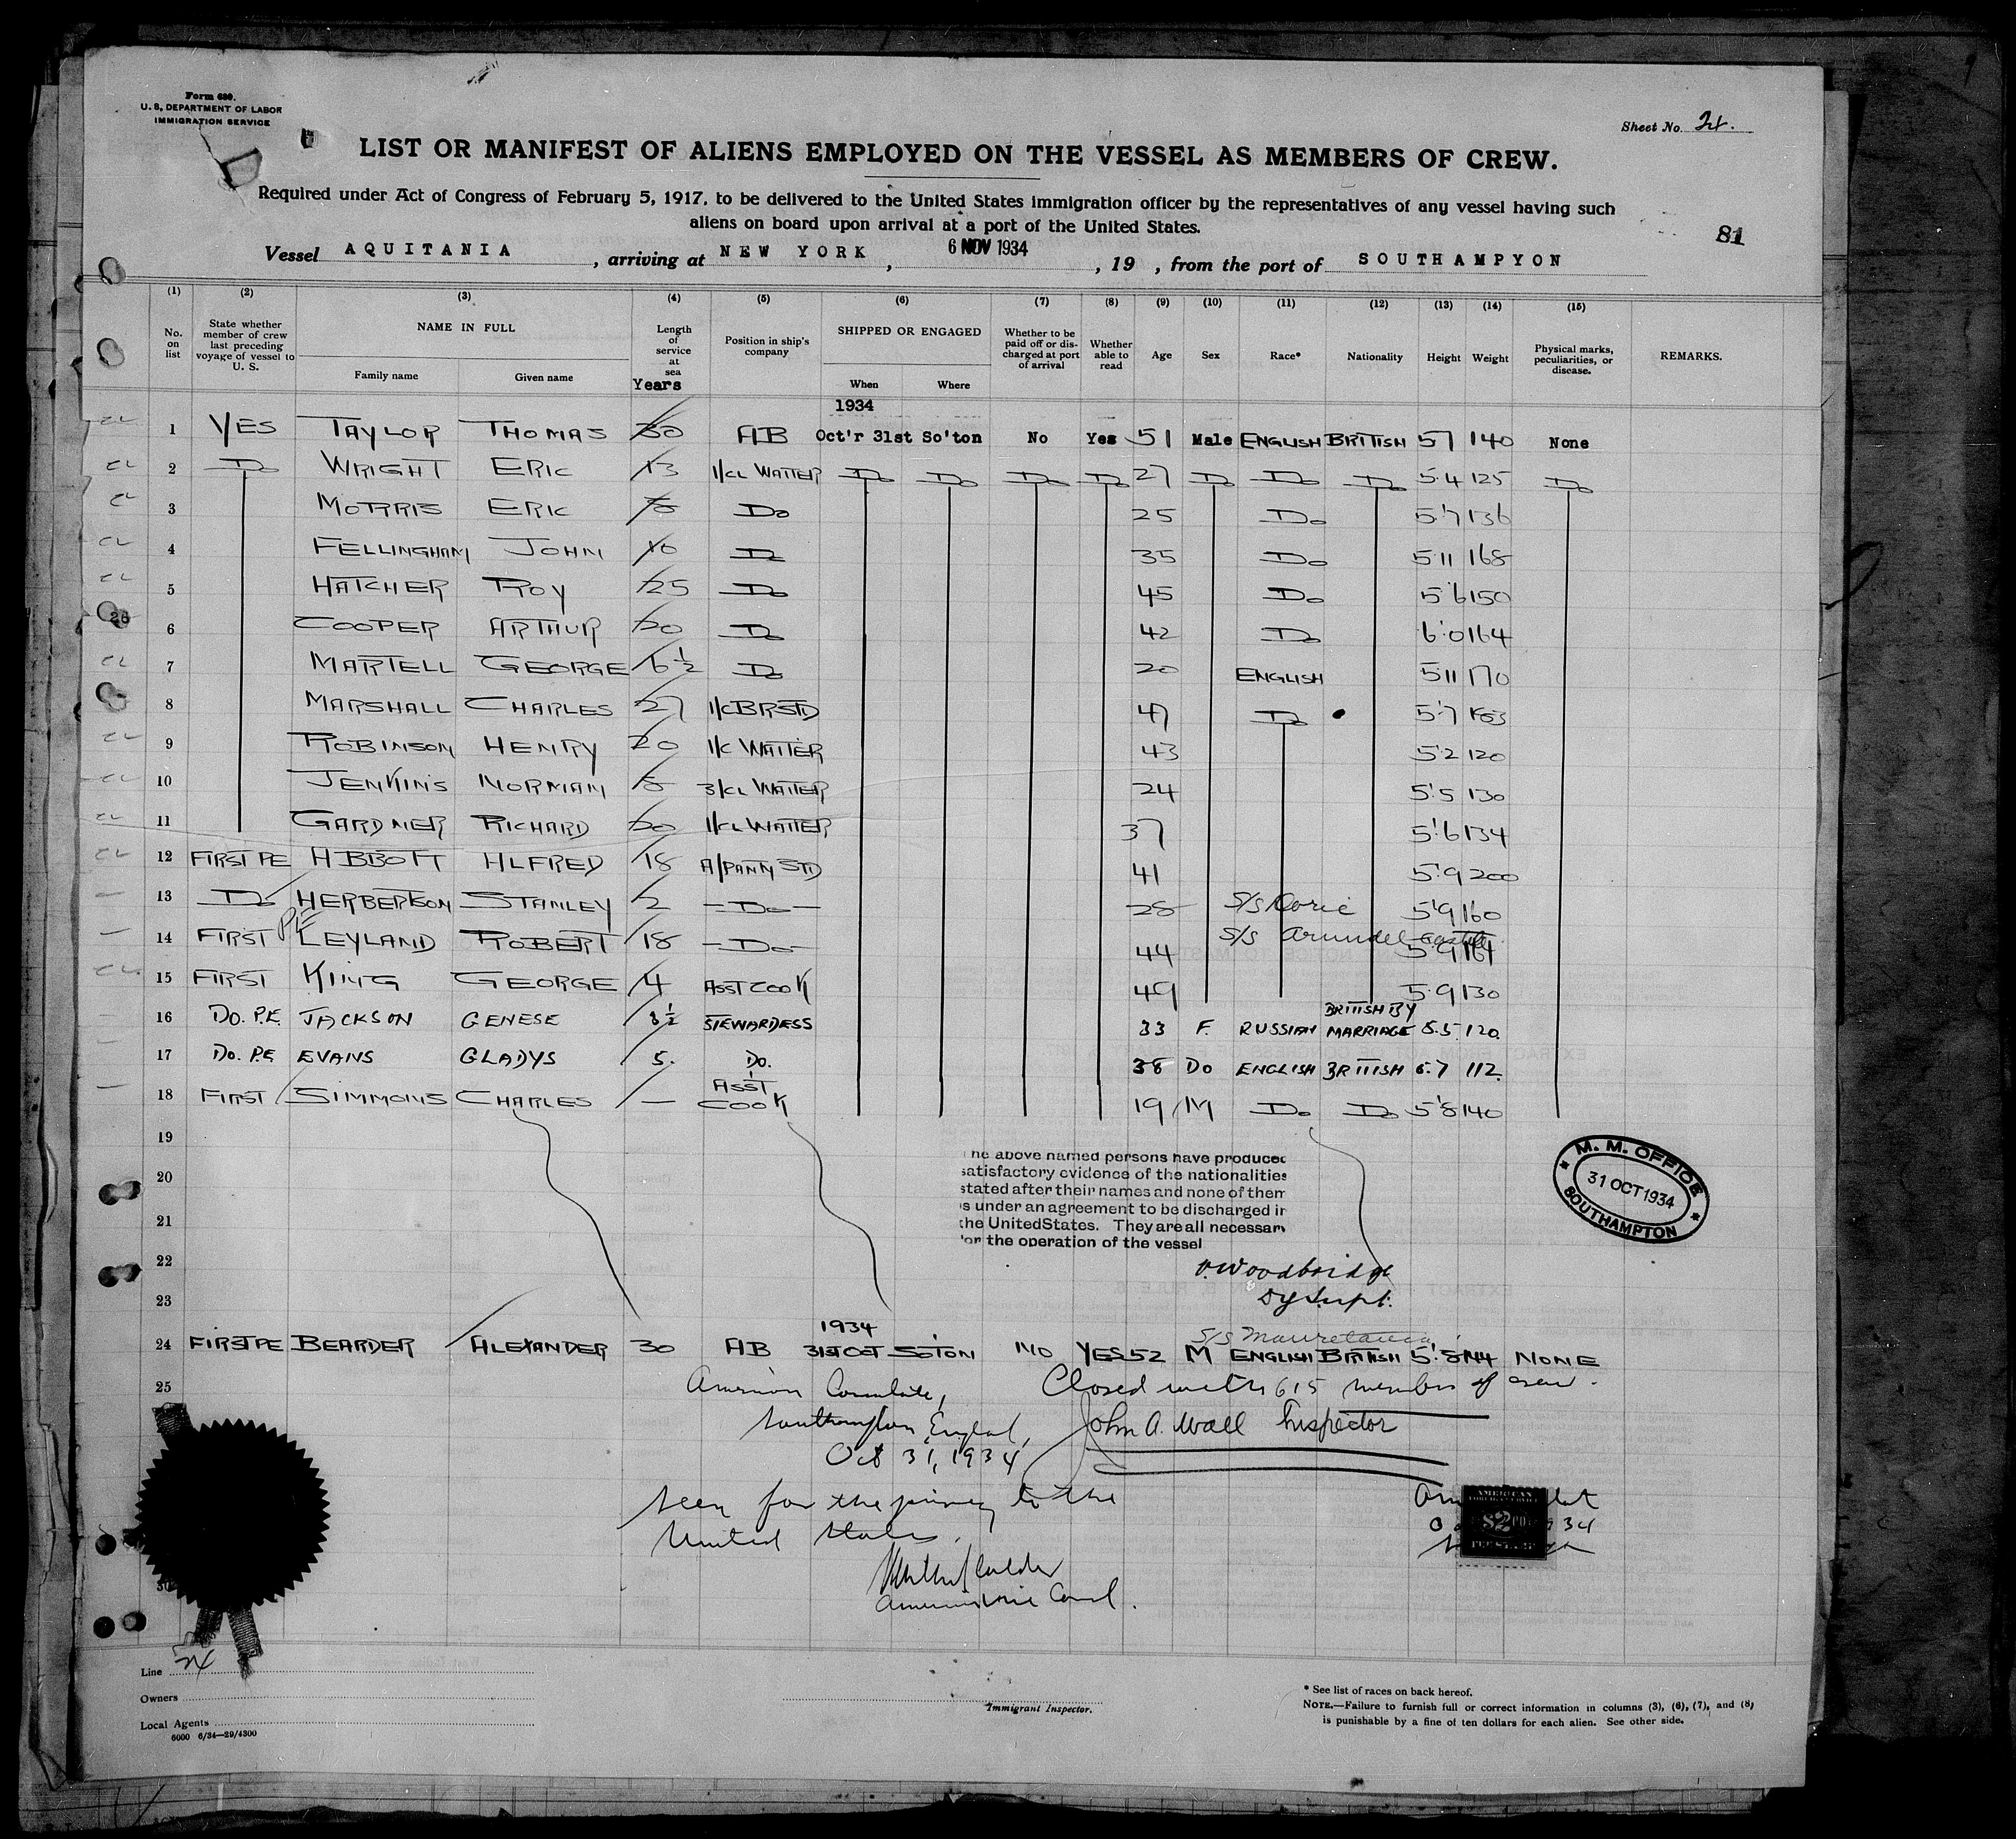 Form 680.
U. S. DEPARTMENT OF LABOR
IMMIGRATION SERVICE
Sheet No. 24.
LIST OR MANIFEST OF ALIENS EMPLOYED ON THE VESSEL AS MEMBERS OF CREW.
Required under Act of Congress of February 5, 1917, to be delivered to the United States immigration officer by the representatives of any vessel having such
aliens on board upon arrival at a port of the United States.
81
Vessel AQUITANIA, arriving at NEW YORK, 6 NOV 1934, 19 , from the port of SOUTHAMPYON
(1) (2) (3) (4) (5) (6) (7) (8) (9) (10) (11) (12) (13) (14) (15)
No. on list
State whether member of crew last preceding voyage of vessel to U. S.
NAME IN FULL
Family name Given name
Length of service at sea
Years
Position in ship's company
SHIPPED OR ENGAGED
When Where
Whether to be paid off or discharged at port of arrival
Whether able to read
Age Sex Race* Nationality Height Weight
Physical marks, peculiarities, or disease.
REMARKS.
1934
1 YES TAYLOR THOMAS 30 AB Oct'r 31st So'ton No Yes 51 Male ENGLISH BRITISH 57 140 None
2 Do WRIGHT ERIC 13 1/CL WAITER Do Do Do Do 27 Do Do Do 5.4 125 Do
3 MORRIS ERIC 8 Do 25 Do 5'7 136
4 FELLINGHAM JOHN 10 Do 35 Do 5.11 168
5 HATCHER ROY 25 Do 45 Do 5'6 150
26
6 COOPER ARTHUR 20 Do 42 Do 6'0 164
7 MARTELL GEORGE 6½ Do 20 ENGLISH 5.11 170
8 MARSHALL CHARLES 27 1/C BR STD 47 Do 5'7 163
9 ROBINSON HENRY 20 1/C WAITER 43 5'2 120
10 JENKINS NORMAN 8 3/CL WAITER 24 5'5 130
11 GARDNER RICHARD 20 1/CL WAITER 37 5'6 134
12 FIRST PE ABBOTT ALFRED 18 A/PANTY STD 41 5'9 200
13 Do HERBERTSON STANLEY 2 Do 28 S/S Doric 5'9 160
14 FIRST PE LEYLAND ROBERT 18 Do 44 S/S Arundel Castle 5'9 164
15 FIRST KING GEORGE 4 ASST COOK 49 5.9 130
16 DO. P.E. JACKSON GENESE 3½ STEWARDESS 33 F. RUSSIAN BRITISH BY MARRIAGE 5.5 120
17 DO. P.E EVANS GLADYS 5. DO. 38 DO ENGLISH BRITISH 5.7 112
18 FIRST SIMMONS CHARLES — ASST COOK 19 M Do Do 5'8 140
19
The above named persons have produced
20
satisfactory evidence of the nationalities
stated after their names and none of them
is under an agreement to be discharged in
21
the United States. They are all necessary
for the operation of the vessel
M. M. OFFICE
31 OCT 1934
SOUTHAMPTON
22
Woodbridge
23
Dy Supt.
24 FIRST PE BEARDER ALEXANDER 30 AB 1934 31ST OCT SOTON NO YES 52 M S/S Mauretania ENGLISH BRITISH 5'.8 144 NONE
25
American Consulate,
Southampton, England,
Oct 31, 1934
Closed with 615 members of crew.
John A. Wall Inspector
Seen for the journey to the
United States.
American Vice Consul.
AMERICAN
FOREIGN SERVICE
$2.00
FEE STAMP
30
Line 24
Owners
Local Agents
6000 6/34—29/4300
Immigrant Inspector.
* See list of races on back hereof.
NOTE.—Failure to furnish full or correct information in columns (3), (6), (7), and (8)
is punishable by a fine of ten dollars for each alien. See other side.